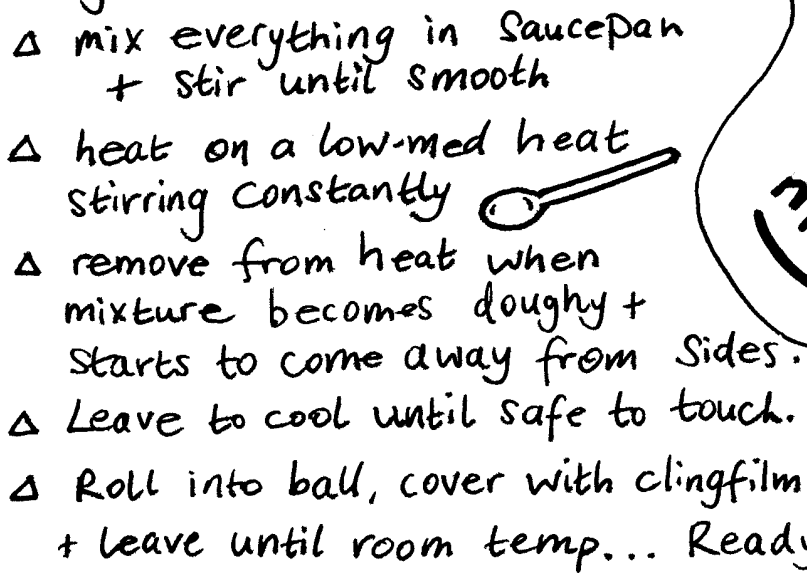 Δ mix everything in saucepan
+ stir until smooth
Δ heat on a low-med heat
stirring constantly
Δ remove from heat when
mixture becomes doughy +
starts to come away from sides.
Δ Leave to cool until safe to touch.
Δ Roll into ball, cover with clingfilm
+ leave until room temp... Ready